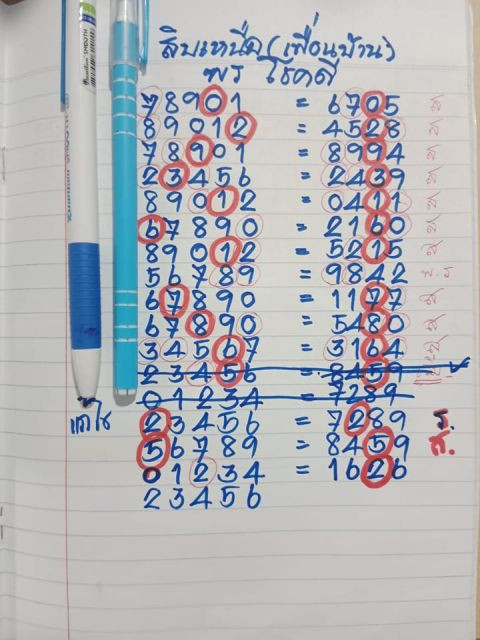 สิบเหนือ (เพื่อนบ้าน)
พร โชคดี
78901 = 6705 ส
89012 = 4528 ส
78901 = 8994 ส
23456 = 2439 ส
89012 = 0411 ส
67890 = 2160 ส
89012 = 5215 ส
56789 = 9842
67890 = 1177 ส
67890 = 5480 ส
34567 = 3164 ส
23456 = 8459
01234 = 7289
แก้ไข 23456 = 7289 ร.
56789 = 8459 ส.
01234 = 1626
23456